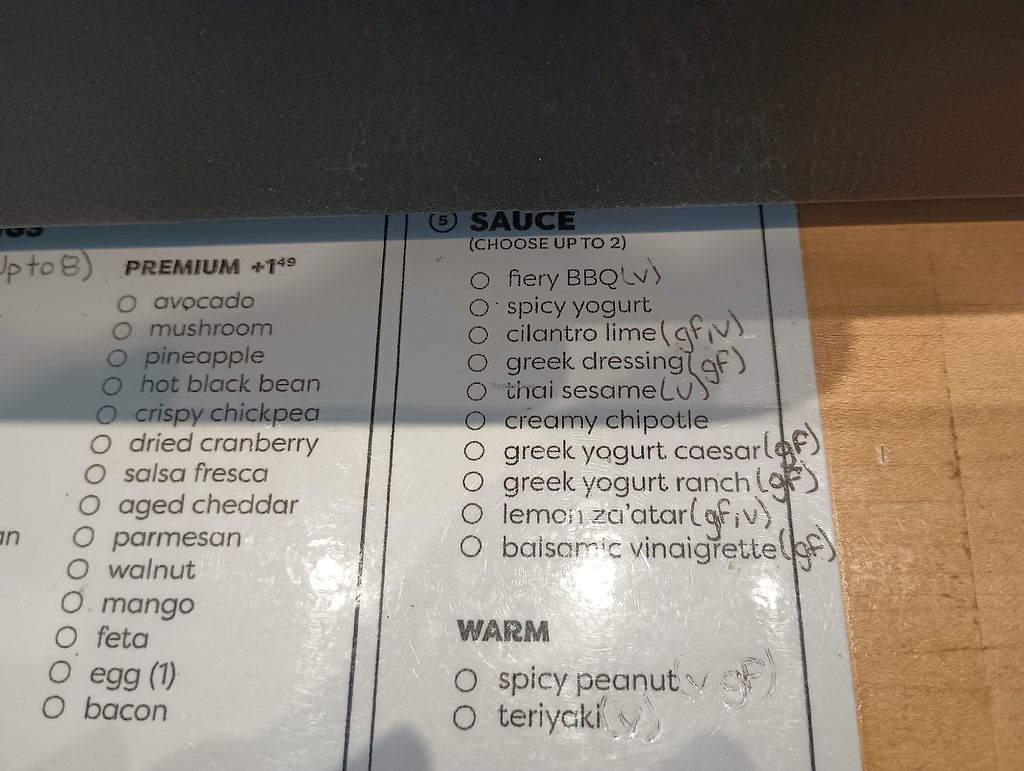 Up to 8)
PREMIUM +1⁴⁹
avocado
mushroom
pineapple
hot black bean
crispy chickpea
dried cranberry
salsa fresca
aged cheddar
parmesan
walnut
mango
feta
egg (1)
bacon
5 SAUCE
(CHOOSE UP TO 2)
fiery BBQ (v)
spicy yogurt
cilantro lime (gf, v)
greek dressing (gf)
thai sesame (v)
creamy chipotle
greek yogurt caesar (gf)
greek yogurt ranch (gf)
lemon za'atar (gf, v)
balsamic vinaigrette (gf)
WARM
spicy peanut (v gf)
teriyaki (v)